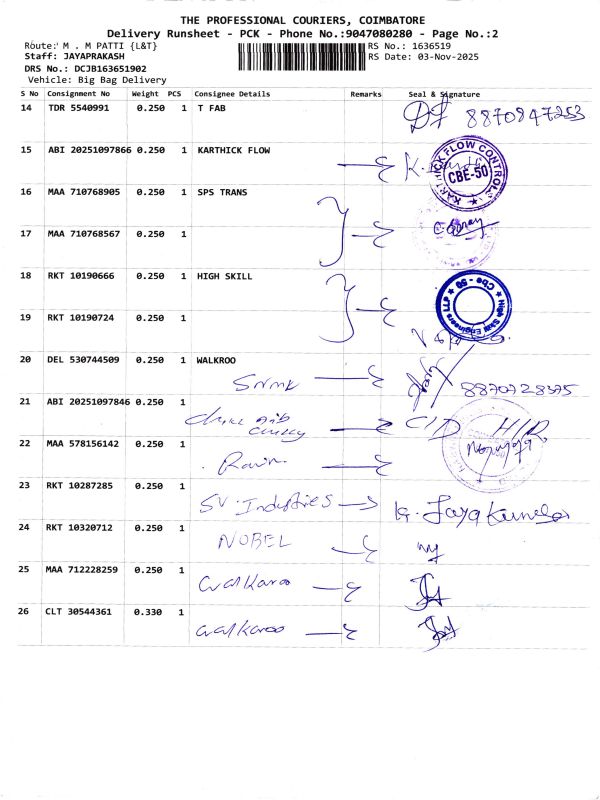 THE PROFESSIONAL COURIERS, COIMBATORE
Delivery Runsheet - PCK - Phone No.:9047080280 - Page No.:2
Route: M . M PATTI {L&T}
RS No.: 1636519
Staff: JAYAPRAKASH
RS Date: 03-Nov-2025
DRS No.: DCJB163651902
Vehicle: Big Bag Delivery
S No Consignment No Weight PCS Consignee Details Remarks Seal & Signature
14 TDR 5540991 0.250 1 T FAB 8870847253
15 ABI 20251097866 0.250 1 KARTHICK FLOW
KARTHICK FLOW CONTROLS CBE-50
16 MAA 710768905 0.250 1 SPS TRANS
17 MAA 710768567 0.250 1
18 RKT 10190666 0.250 1 HIGH SKILL
High Skill Engineers LLP Cbe - 50
19 RKT 10190724 0.250 1
20 DEL 530744509 0.250 1 WALKROO
8870728375
21 ABI 20251097846 0.250 1
C/D H/R
22 MAA 578156142 0.250 1
23 RKT 10287285 0.250 1
SV. Industries G. Jaya Kumar
24 RKT 10320712 0.250 1
NOBEL
25 MAA 712228259 0.250 1
walkaroo
26 CLT 30544361 0.330 1
walkaroo